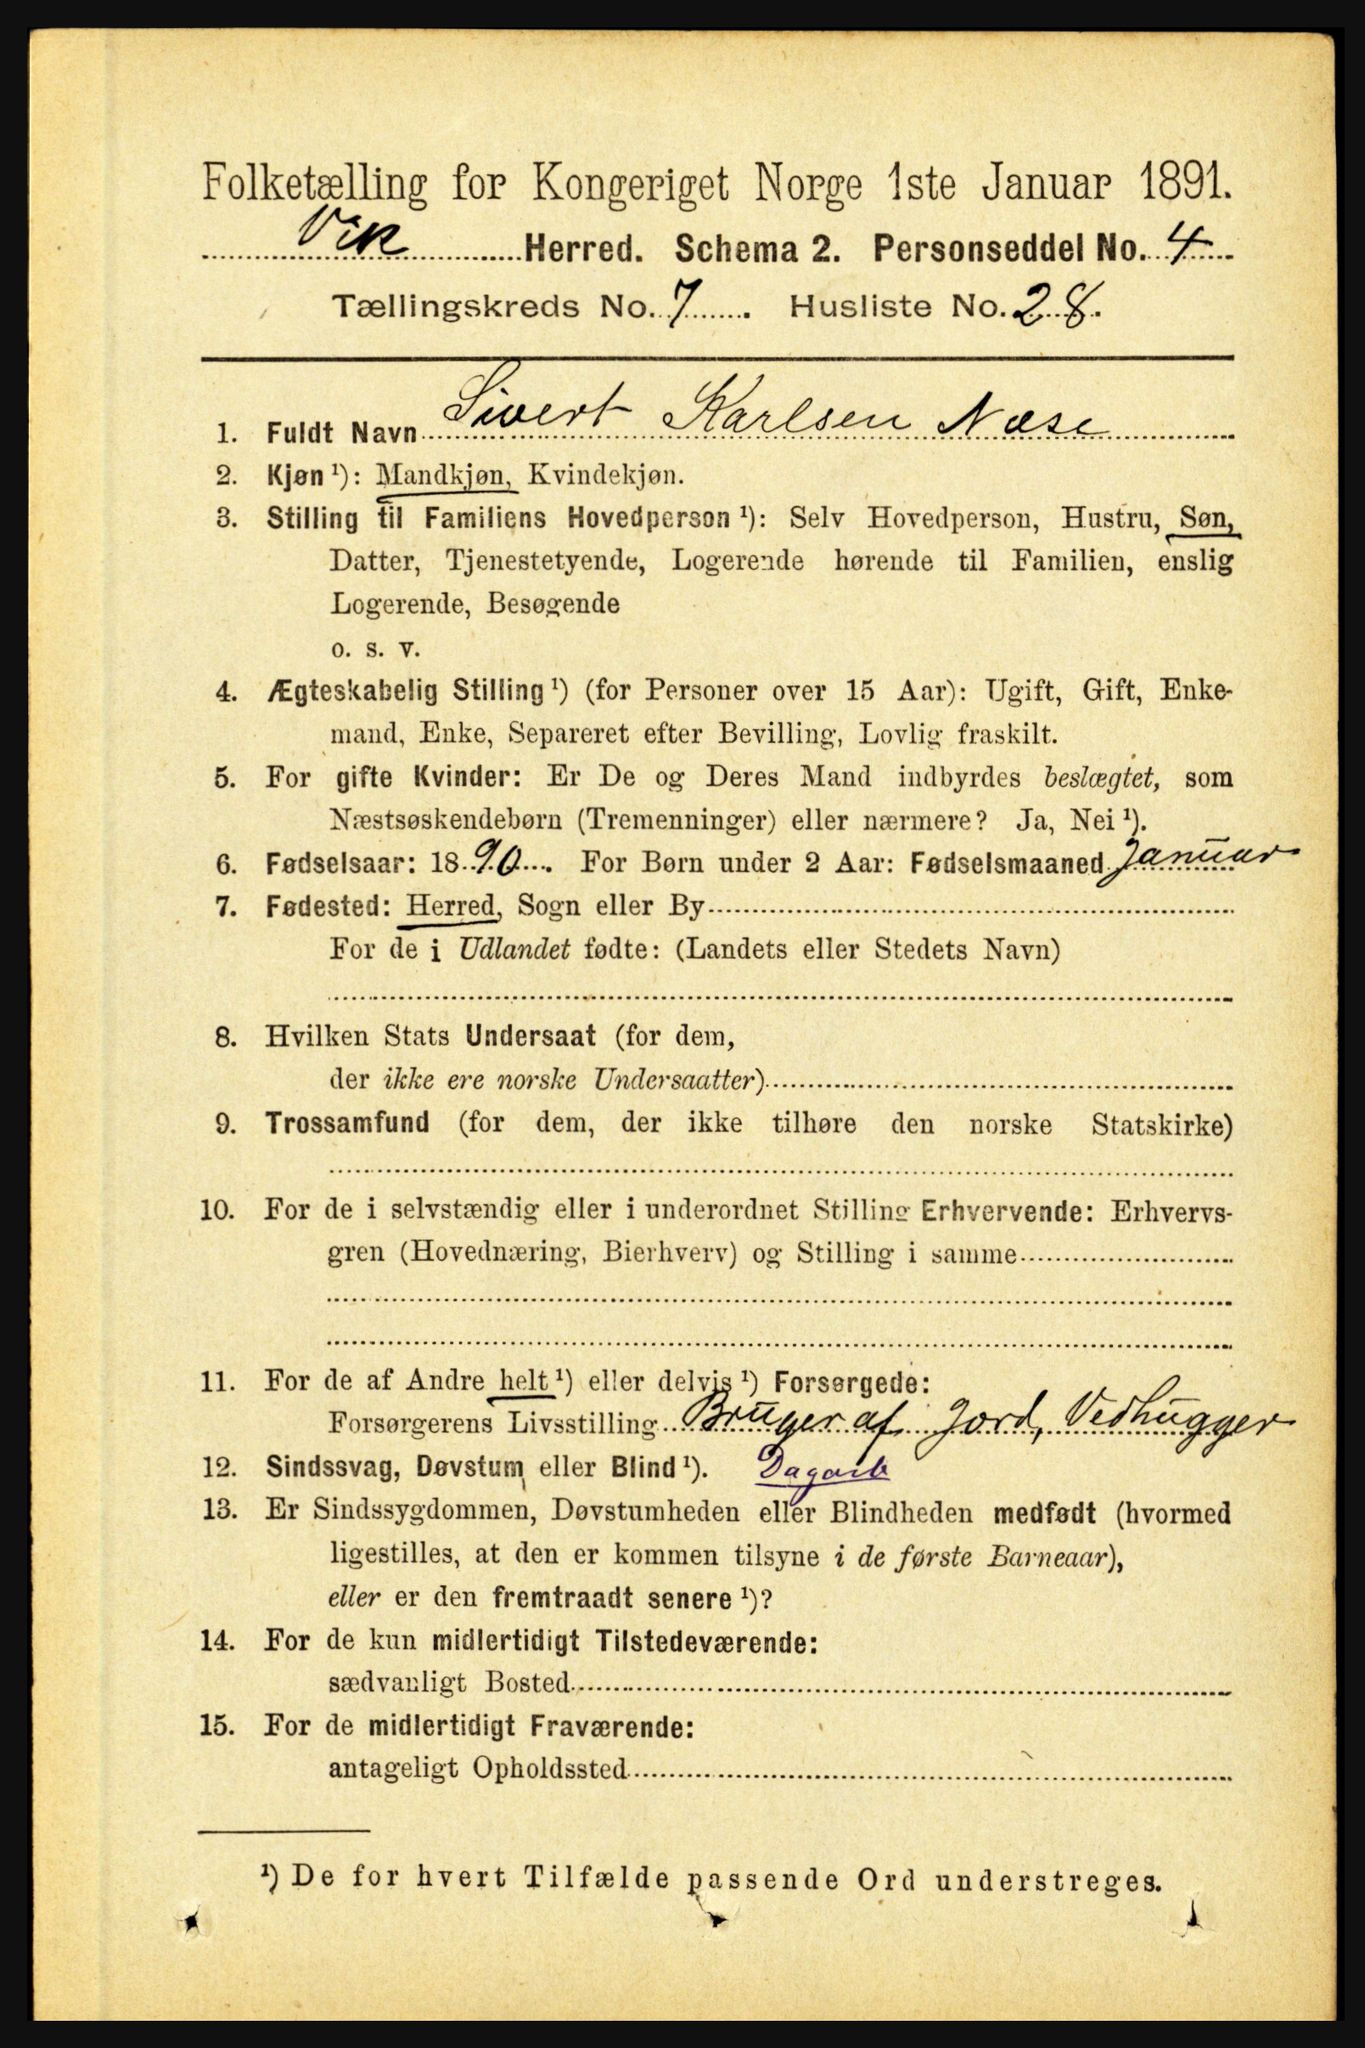 Folketælling for Kongeriget Norge 1ste Januar 1891.
Vik Herred. Schema 2. Personseddel No. 4
Tællingskreds No. 7. Husliste No. 28.
1. Fuldt Navn Sivert Karlsen Næse
2. Kjøn ¹): Mandkjøn, Kvindekjøn.
3. Stilling til Familiens Hovedperson ¹): Selv Hovedperson, Hustru, Søn,
Datter, Tjenestetyende, Logerende hørende til Familien, enslig
Logerende, Besøgende
o. s. v.
4. Ægteskabelig Stilling ¹) (for Personer over 15 Aar): Ugift, Gift, Enke-
mand, Enke, Separeret efter Bevilling, Lovlig fraskilt.
5. For gifte Kvinder: Er De og Deres Mand indbyrdes beslægtet, som
Næstsøskendebørn (Tremenninger) eller nærmere? Ja, Nei ¹).
6. Fødselsaar: 1890. For Børn under 2 Aar: Fødselsmaaned Januar
7. Fødested: Herred, Sogn eller By
For de i Udlandet fødte: (Landets eller Stedets Navn)
8. Hvilken Stats Undersaat (for dem,
der ikke ere norske Undersaatter)
9. Trossamfund (for dem, der ikke tilhøre den norske Statskirke)
10. For de i selvstændig eller i underordnet Stilling Erhvervende: Erhvervs-
gren (Hovednæring, Bierhverv) og Stilling i samme
11. For de af Andre helt ¹) eller delvis ¹) Forsørgede:
Forsørgerens Livsstilling Bruger af Jord, Vedhugger
12. Sindssvag, Døvstum eller Blind ¹). Dagarb
13. Er Sindssygdommen, Døvstumheden eller Blindheden medfødt (hvormed
ligestilles, at den er kommen tilsyne i de første Barneaar),
eller er den fremtraadt senere ¹)?
14. For de kun midlertidigt Tilstedeværende:
sædvanligt Bosted
15. For de midlertidigt Fraværende:
antageligt Opholdssted
¹) De for hvert Tilfælde passende Ord understreges.